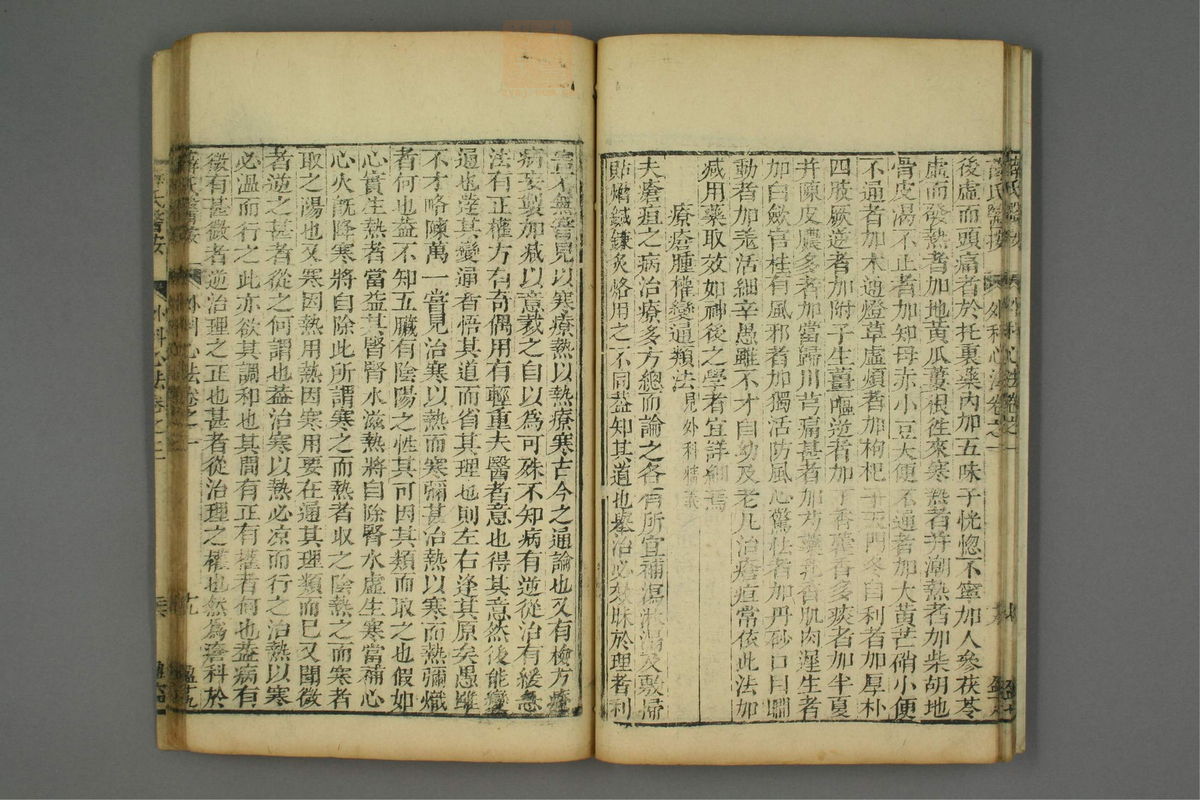 薛氏醫按 外科心法卷之一
後虛而頭痛者於托裏藥內加五味子恍惚不寧加人參茯苓
虛而發熱者加地黃瓜蔞根徃來寒熱者并潮熱者加柴胡地
骨皮渴不止者加知母赤小豆大便不通者加大黃芒硝小便
不通者加木通燈草虛煩者加枸杞子天門冬自利者加厚朴
四肢厥逆者加附子生薑嘔逆者加丁香藿香多痰者加半夏
并陳皮膿多者加當歸川芎痛甚者加芍藥乳香肌肉遲生者
加白斂官桂有風邪者加獨活防風心驚怯者加丹砂口目瞤
動者加羌活細辛愚雖不才自幼及老凡治瘡疽常依此法加
減用藥取效如神後之學者宜詳細焉
療瘡腫權變通類法見外科精義
夫瘡疽之病治療多方總而論之各有所宜補瀉淋溻及敷掃
貼熁鍼鐮灸烙用之不同葢知其道也舉治必效昧於理者利
害不無嘗見以寒療熱以熱療寒古今之通論也又有檢方療
病妄製加減以意裁之自以為可殊不知病有逆從治有緩急
法有正權方有奇偶用有輕重夫醫者意也得其意然後能變
通也達其變通者悟其道而省其理也則左右逢其原矣愚雖
不才略陳萬一嘗見治寒以熱而寒彌甚治熱以寒而熱彌熾
者何也葢不知五臟有陰陽之性其可因其類而取之也假如
心實生熱者當益其腎腎水滋熱將自除腎水虛生寒當補心
心火旣降寒將自除此所謂寒之而熱者取之陰熱之而寒者
取之陽也又寒因熱用熱因寒用要在通其理類而巳又聞微
者逆之甚者從之何謂也葢治寒以熱必凉而行之治熱以寒
必溫而行之此亦欲其調和也其間有正有權者何也葢病有
微有甚微者逆治理之正也甚者從治理之權也然為瘡科於
薛氏醫按 外科心法卷之一
薛氏醫按 外科心法卷之二